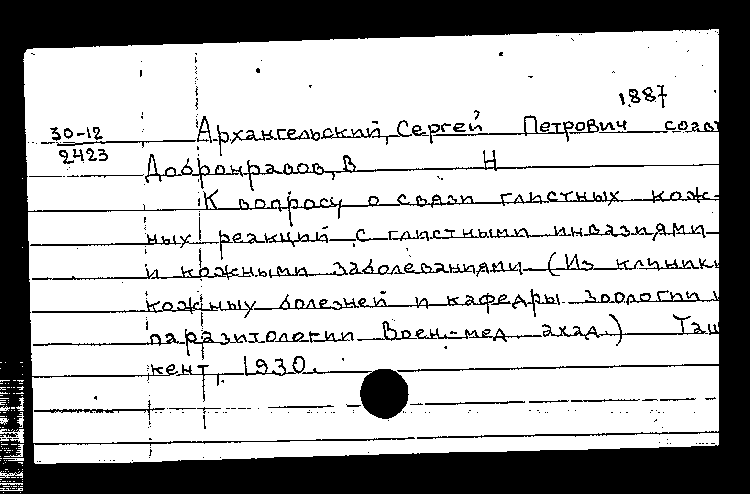 1887
30-12
2423
Архангельский, Сергей Петрович соавт
Добронравов, В Н
К вопросу о связи глистных кож-
ных реакций с глистными инвазиями
и кожными заболеваниями (Из клиник
кожных болезней и кафедры зоологии и
паразитологии Воен.-мед. акад.) Таш
кент, 1930.